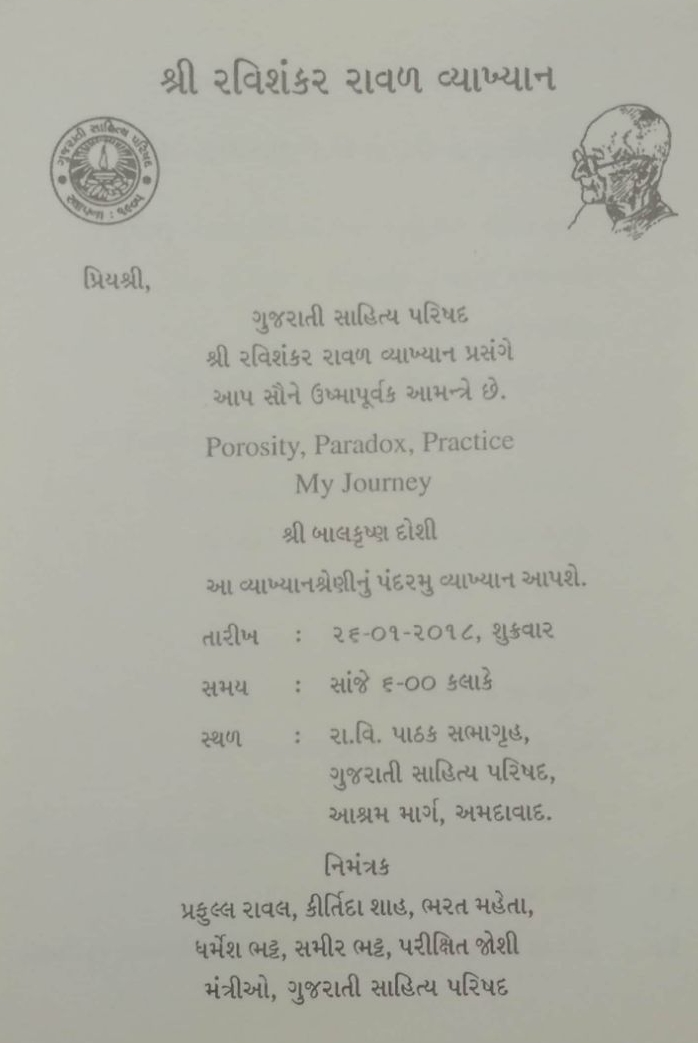 શ્રી રવિશંકર રાવળ વ્યાખ્યાન
ગુજરાતી સાહિત્ય પરિષદ
સ્થાપના : ૧૯૦૫
પ્રિયશ્રી,
ગુજરાતી સાહિત્ય પરિષદ
શ્રી રવિશંકર રાવળ વ્યાખ્યાન પ્રસંગે
આપ સૌને ઉષ્માપૂર્વક આમન્ત્રે છે.
Porosity, Paradox, Practice
My Journey
શ્રી બાલકૃષ્ણ દોશી
આ વ્યાખ્યાનશ્રેણીનું પંદરમુ વ્યાખ્યાન આપશે.
તારીખ : ૨૬-૦૧-૨૦૧૮, શુક્રવાર
સમય : સાંજે ૬-૦૦ કલાકે
સ્થળ : રા.વિ. પાઠક સભાગૃહ,
ગુજરાતી સાહિત્ય પરિષદ,
આશ્રમ માર્ગ, અમદાવાદ.
નિમંત્રક
પ્રફુલ્લ રાવલ, કીર્તિદા શાહ, ભરત મહેતા,
ધર્મેશ ભટ્ટ, સમીર ભટ્ટ, પરીક્ષિત જોશી
મંત્રીઓ, ગુજરાતી સાહિત્ય પરિષદ